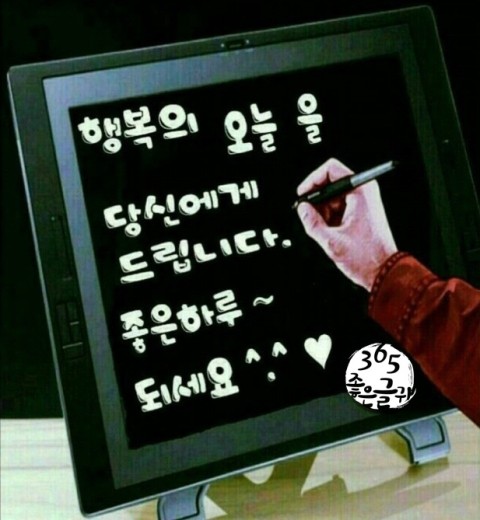 행복의 오늘 을
당신에게
드립니다.
좋은하루 ~
되세요 ^.^ ♥
365
좋은글귀